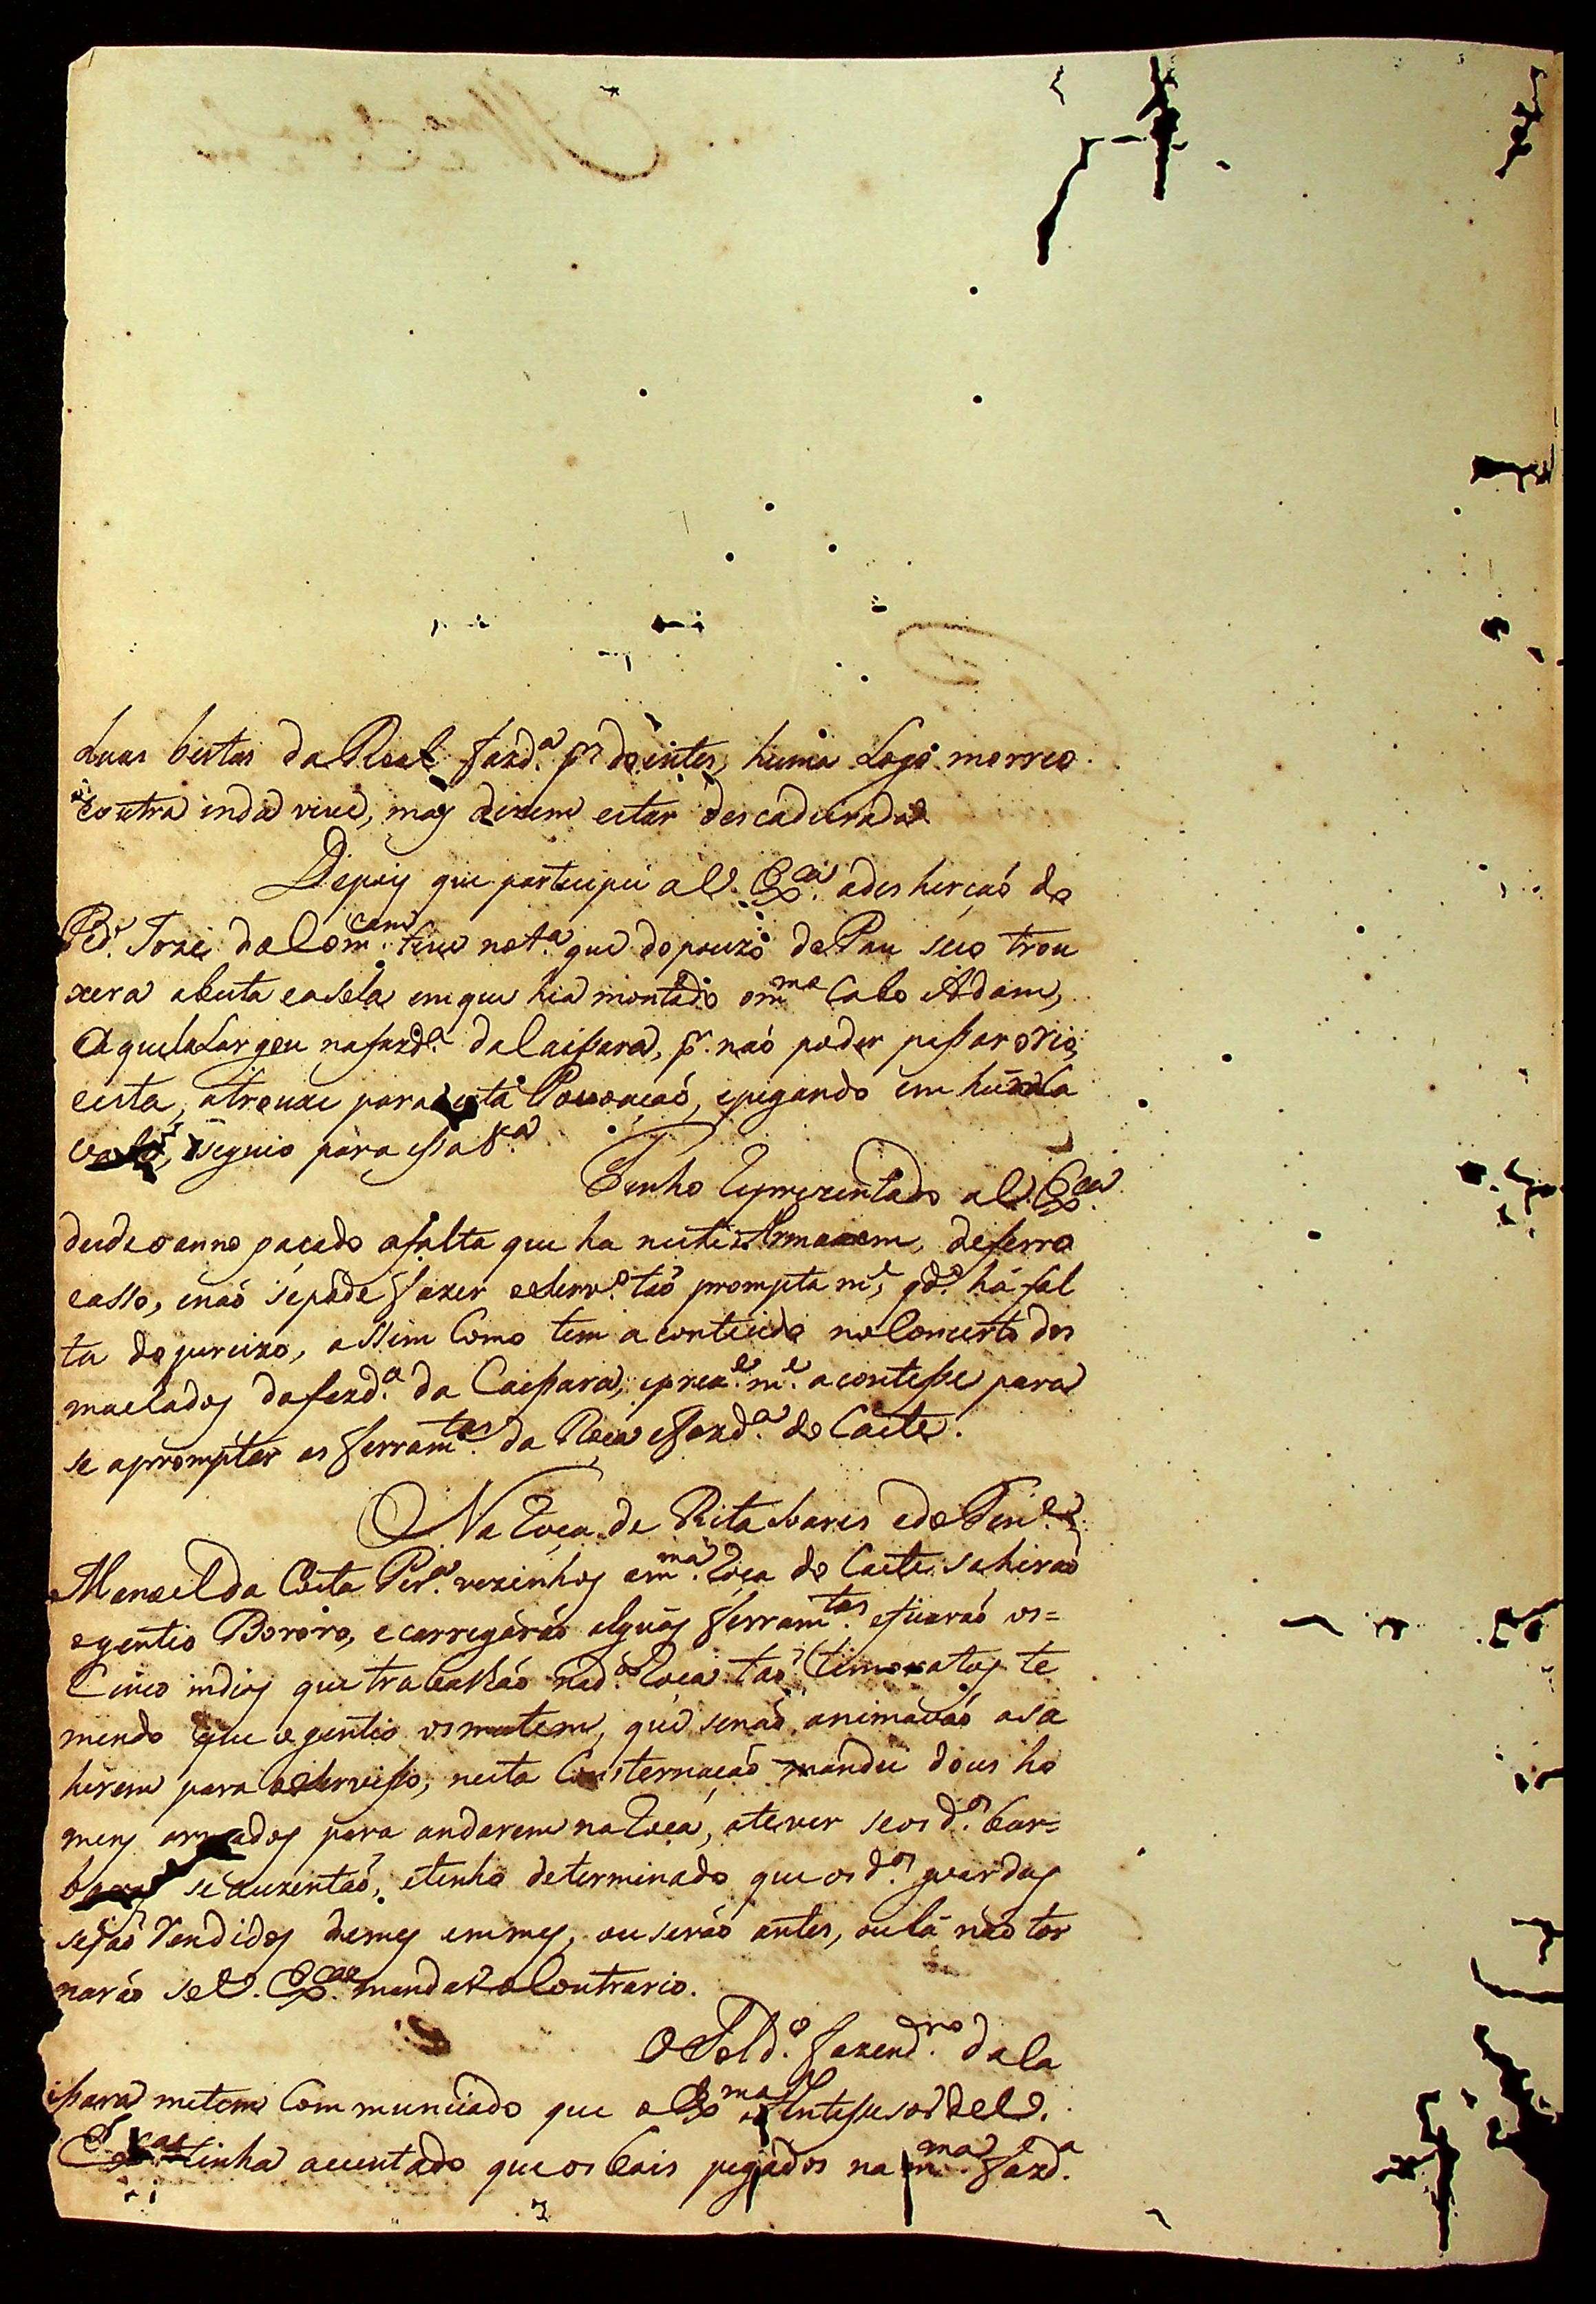 duas bestas da Real fazd.ª p.r doentes, huma Logo morreo
e outra inda vive, mas dizem estar descadeirada
Depois que participei a V. Ex.ª a deshersaõ de
Ped.º Joze da Com tive not.ª que do pouzo de Pau seco trou
xera a besta e a sela em que hia montado o m.mo Cabo Adam,
aquela Largou na fazd.ª da Caissara, p.r naõ poder passar o rio,
e esta, a trouxe para esta Povoaçaõ, e pegando em hu Ca
valo, seguio para essa V.ª
Tenho reprezentado a V. Ex.ª
desde o anno paçado a falta que ha neste Armazem, de ferro
e asso, e naõ se pode fazer o serv.º taõ prompta m.e, qd.º há fal
ta do precizo, assim Como tem acontecido no Concerto dos
maxados da fazd.ª da Caissara, e prez.e m.e acontesse para
se apromptar as ferram.tas da Roça e fazd.ª do Caite.
Na roça de Rita Soares e do Ten.e
Manoel da Costa Per.ª vezinhos a m.ma roça do Caite sahiraõ
o gentio Bororo, e carregáraõ alguãs ferram.tas e ficaraõ os=
Cinco indios que trabalhaõ na d.ª roça taõ timoratos te
mendo que o gentio os matem, que se naõ animavaõ a sa
hirem para o servisso, nesta Consternaçaõ mandei dous ho
mens armados para andarem na roça, ate ver se os d.os bar=
baros se auzentaõ, e tenho determinado que os d.os guardas
sejaõ rendidos de mes em mes, ou seráo antes, ou lá naõ tor
naráo se V. Ex.ª mandar o Contrario.
O Sold.º fazend.ro da Ca
issara me tem Communicado que o Ex.mo Antessesor de V.
Ex.ª tinha acentado que os bois pegados na m.ma fazd.ª